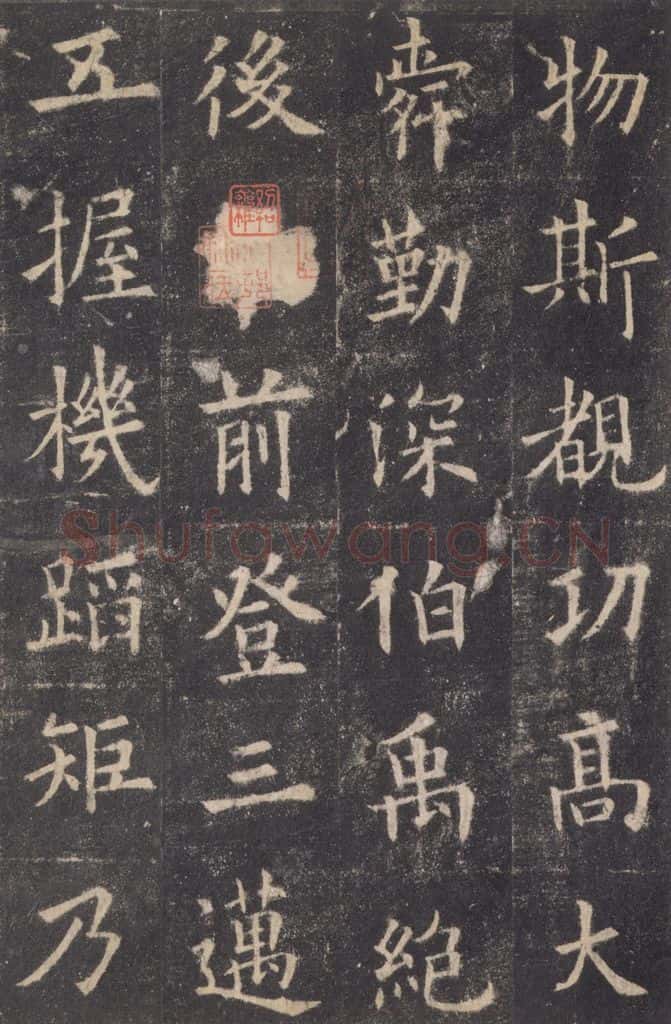 物斯覩功高大
舜勤深伯禹絕
後前登三邁
五握機蹈矩乃
Shufawang.CN